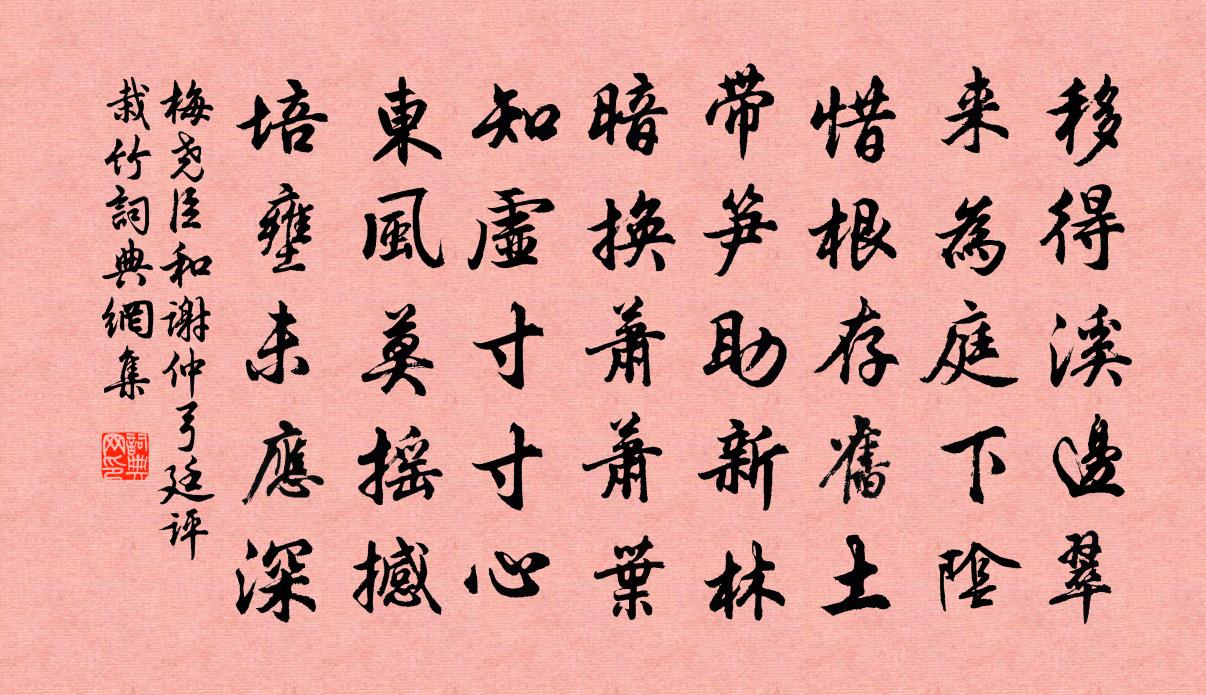 移得溪邊翠
来為庭下陰
惜根存舊土
帶笋助新林
暗換蕭蕭葉
知虛寸寸心
東風莫摇撼
培壅未應深
梅尧臣和謝仲弓廷評
栽竹詞典網集
詞典网印